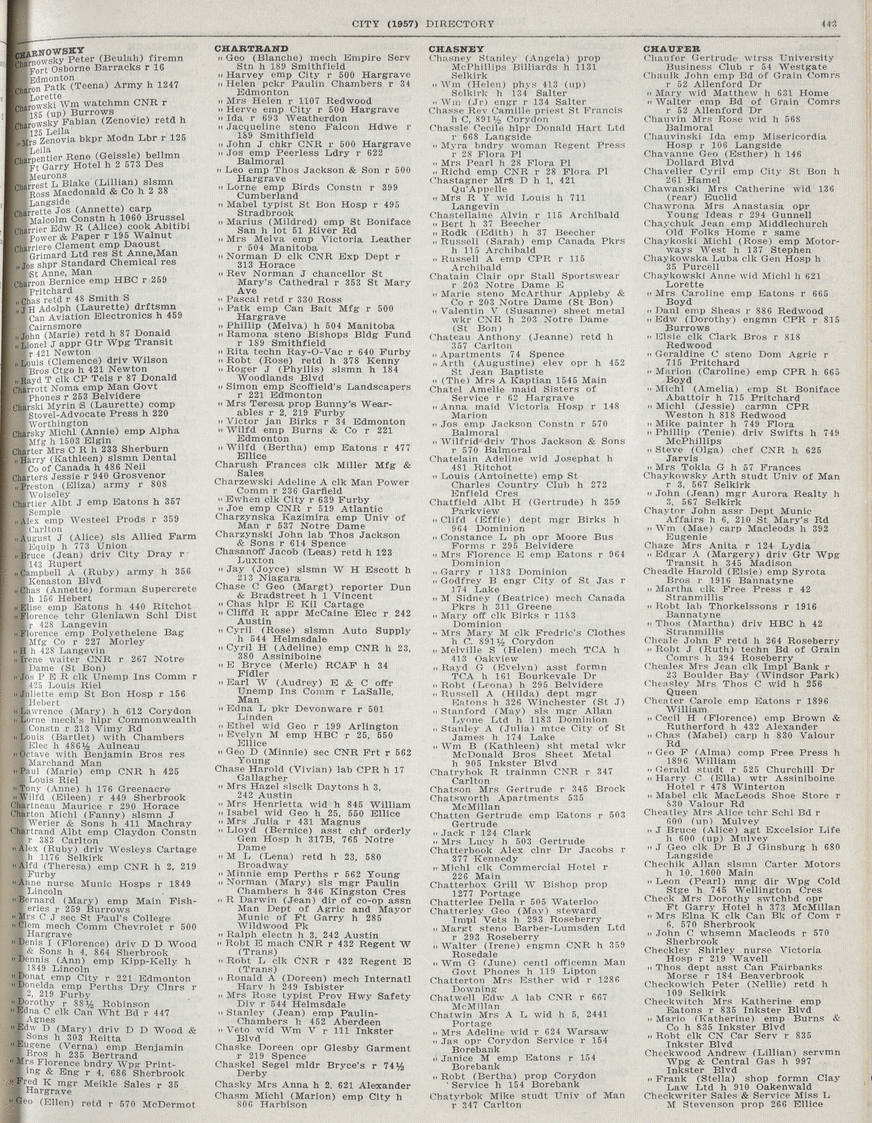 CITY (1957) DIRECTORY
443
CHARNOWSKY
Charnowsky Peter (Beulah) firemn
Fort Osborne Barracks r 16
Edmonton
Charon Patk (Teena) Army h 1247
Lorette
Charowski Wm watchmn CNR r
185 (up) Burrows
Charowsky Fabian (Zenovie) retd h
125 Leila
" Mrs Zenovia bkpr Modn Lbr r 125
Leila
Charpentier Reno (Geissle) bellmn
Ft Garry Hotel h 2 573 Des
Meurons
Charrest L Blake (Lillian) slsmn
Ross Macdonald & Co h 2 38
Langside
Charrette Jos (Annette) carp
Malcolm Constn h 1060 Brussel
Charrier Edw R (Alice) cook Abitibi
Power & Paper r 195 Walnut
Charriere Clement emp Daoust
Grimard Ltd res St Anne, Man
" Jos shpr Standard Chemical res
St Anne, Man
Charron Bernice emp HBC r 259
Pritchard
" Chas retd r 48 Smith S
" J H Adolph (Laurette) drftsmn
Can Aviation Electronics h 459
Cairnsmore
" John (Marie) retd h 87 Donald
" Lionel J appr Gtr Wpg Transit
r 421 Newton
" Louis (Clemence) driv Wilson
Bros Ctge h 421 Newton
" Rayd T clk CP Tels r 87 Donald
Charrott Noma emp Man Govt
Phones r 253 Belvidere
Charski Myrin S (Laurette) comp
Stovel-Advocate Press h 220
Worthington
Charsky Michl (Annie) emp Alpha
Mfg h 1503 Elgin
Charter Mrs C R h 233 Sherburn
" Harry (Kathleen) slsmn Dental
Co of Canada h 486 Neil
Charters Jessie r 940 Grosvenor
" Preston (Eliza) army r 808
Wolseley
Chartier Albt J emp Eatons h 357
Semple
" Alex emp Westeel Prods r 359
Carlton
" August J (Alice) sls Allied Farm
Equip h 773 Union
" Bruce (Jean) driv City Dray r
143 Rupert
" Campbell A (Ruby) army h 356
Kenaston Blvd
" Chas (Annette) forman Supercrete
h 156 Hebert
" Elise emp Eatons h 440 Ritchot
" Florence tchr Glenlawn Schl Dist
r 428 Langevin
" Florence emp Polyethelene Bag
Mfg Co r 227 Morley
" H h 428 Langevin
" Irene waiter CNR r 267 Notre
Dame (St Bon)
" Jos P E R clk Unemp Ins Comm r
425 Louis Riel
" Juliette emp St Bon Hosp r 156
Hebert
" Lawrence (Mary) h 612 Corydon
" Lorne mech's hlpr Commonwealth
Constn r 313 Vimy Rd
" Louis (Bartlet) with Chambers
Elec h 486½ Aulneau
" Octave with Benjamin Bros res
Marchand Man
" Paul (Marie) emp CNR h 425
Louis Riel
" Tony (Anne) h 176 Greenacre
" Wilfd (Eileen) r 449 Sherbrook
Chartneau Maurice r 290 Horace
Charton Michl (Fanny) slsmn J
Werier & Sons h 411 Machray
Chartrand Albt emp Claydon Constn
r 383 Carlton
" Alex (Ruby) driv Wesleys Cartage
h 1176 Selkirk
" Alfd (Theresa) emp CNR h 2, 219
Furby
" Anne nurse Munic Hosps r 1849
Lincoln
" Bernard (Mary) emp Main Fish-
eries r 259 Burrows
" Mrs C J sec St Paul's College
" Clem mech Comm Chevrolet r 500
Hargrave
" Denis I (Florence) driv D D Wood
& Sons h 4, 864 Sherbrook
" Dennis (Ann) emp Kipp-Kelly h
1849 Lincoln
" Donat emp City r 221 Edmonton
" Donelda emp Perths Dry Clnrs r
2, 219 Furby
" Dorothy r 88½ Robinson
" Edna C clk Can Wht Bd r 447
Agnes
" Edw D (Mary) driv D D Wood &
Sons h 303 Reitta
" Eugene (Verna) emp Benjamin
Bros h 235 Bertrand
" Mrs Florence bndry Wpg Print-
ing & Eng r 4, 686 Sherbrook
" Fred K mgr Meikle Sales r 35
Hargrave
" Geo (Ellen) retd r 570 McDermot
CHARTRAND
" Geo (Blanche) mech Empire Serv
Stn h 189 Smithfield
" Harvey emp City r 500 Hargrave
" Helen pckr Paulin Chambers r 34
Edmonton
" Mrs Helen r 1107 Redwood
" Herve emp City r 500 Hargrave
" Ida r 693 Weatherdon
" Jacqueline steno Falcon Hdwe r
189 Smithfield
" John J chkr CNR r 500 Hargrave
" Jos emp Peerless Ldry r 622
Balmoral
" Leo emp Thos Jackson & Son r 500
Hargrave
" Lorne emp Birds Constn r 399
Cumberland
" Mabel typist St Bon Hosp r 495
Stradbrook
" Marius (Mildred) emp St Boniface
San h lot 51 River Rd
" Mrs Melva emp Victoria Leather
r 504 Manitoba
" Norman D clk CNR Exp Dept r
313 Horace
" Rev Norman J chancellor St
Mary's Cathedral r 353 St Mary
Ave
" Pascal retd r 330 Ross
" Patk emp Can Bait Mfg r 500
Hargrave
" Phillip (Melva) h 504 Manitoba
" Ramona steno Bishops Bldg Fund
r 189 Smithfield
" Rita techn Ray-O-Vac r 640 Furby
" Robt (Rose) retd h 378 Kenny
" Roger J (Phyllis) slsmn h 184
Woodlands Blvd
" Simon emp Scoffield's Landscapers
r 221 Edmonton
" Mrs Teresa prop Bunny's Wear-
ables r 2, 219 Furby
" Victor jan Birks r 34 Edmonton
" Wilfd emp Burns & Co r 221
Edmonton
" Wilfd (Bertha) emp Eatons r 477
Ellice
Charush Frances clk Miller Mfg &
Sales
Charzewski Adeline A clk Man Power
Comm r 236 Garfield
" Ewhen clk City r 639 Furby
" Joe emp CNR r 519 Atlantic
Charzynska Kazimira emp Univ of
Man r 537 Notre Dame
Charzynski John lab Thos Jackson
& Sons r 614 Spence
Chasanoff Jacob (Leas) retd h 123
Luxton
" Jay (Joyce) slsmn W H Escott h
213 Niagara
Chase C Geo (Margt) reporter Dun
& Bradstreet h 1 Vincent
" Chas hlpr E Kil Cartage
" Cliffd R appr McCaine Elec r 242
Austin
" Cyril (Rose) slsmn Auto Supply
h 544 Helmsdale
" Cyril H (Adeline) emp CNR h 23,
380 Assiniboine
" E Bryce (Merle) RCAF h 34
Fidler
" Earl W (Audrey) E & C offr
Unemp Ins Comm r LaSalle,
Man
" Edna L pkr Devonware r 501
Linden
" Ethel wid Geo r 199 Arlington
" Evelyn M emp HBC r 25, 550
Ellice
" Geo D (Minnie) sec CNR Frt r 562
Young
Chase Harold (Vivian) lab CPR h 17
Gallagher
" Mrs Hazel slsclk Daytons h 3,
242 Austin
" Mrs Henrietta wid h 845 William
" Isabel wid Geo h 25, 550 Ellice
" Mrs Julia r 431 Magnus
" Lloyd (Bernice) asst chf orderly
Gen Hosp h 317B, 765 Notre
Dame
" M L (Lena) retd h 23, 580
Broadway
" Minnie emp Perths r 562 Young
" Norman (Mary) sls mgr Paulin
Chambers h 346 Kingston Cres
" R Darwin (Jean) dir of co-op assn
Man Dept of Agric and Mayor
Munic of Ft Garry h 285
Wildwood Pk
" Ralph electn h 3, 242 Austin
" Robt E mach CNR r 432 Regent W
(Trans)
" Robt L clk CNR r 432 Regent E
(Trans)
" Ronald A (Doreen) mech Internatl
Harv h 249 Isbister
" Mrs Rose typist Prov Hwy Safety
Div r 544 Helmsdale
" Stanley (Jean) emp Paulin-
Chambers h 452 Aberdeen
" Veto wid Wm V r 111 Inkster
Blvd
Chaske Doreen opr Glesby Garment
r 219 Spence
Chaskel Segel mldr Bryce's r 74½
Derby
Chasky Mrs Anna h 2, 621 Alexander
Chasm Michl (Marion) emp City h
806 Harbison
CHASNEY
Chasney Stanley (Angela) prop
McPhillips Billiards h 1131
Selkirk
" Wm (Helen) phys 413 (up)
Selkirk h 134 Salter
" Wm (Jr) engr r 134 Salter
Chasse Rev Camille priest St Francis
h C, 891½ Corydon
Chassle Cecile hlpr Donald Hart Ltd
r 668 Langside
" Myra bndry woman Regent Press
r 28 Flora Pl
" Mrs Pearl h 28 Flora Pl
" Richd emp CNR r 28 Flora Pl
Chastagner Mrs D h 1, 421
Qu'Appelle
" Mrs R Y wid Louis h 711
Langevin
Chastellaine Alvin r 115 Archibald
" Bert h 37 Beecher
" Rodk (Edith) h 37 Beecher
" Russell (Sarah) emp Canada Pkrs
h 115 Archibald
" Russell A emp CPR r 115
Archibald
Chatain Clair opr Stall Sportswear
r 203 Notre Dame E
" Marie steno McArthur Appleby &
Co r 203 Notre Dame (St Bon)
" Valentin V (Susanne) sheet metal
wkr CNR h 203 Notre Dame
(St Bon)
Chateau Anthony (Jeanne) retd h
357 Carlton
" Apartments 74 Spence
" Arth (Augustine) elev opr h 452
St Jean Baptiste
" (The) Mrs A Kaptian 1545 Main
Chatel Amelie maid Sisters of
Service r 62 Hargrave
" Anna maid Victoria Hosp r 148
Marion
" Jos emp Jackson Constn r 570
Balmoral
" Wilfrid driv Thos Jackson & Sons
r 570 Balmoral
Chatelain Adeline wid Josephat h
481 Ritchot
" Louis (Antoinette) emp St
Charles Country Club h 272
Enfield Cres
Chatfield Albt H (Gertrude) h 359
Parkview
" Clifd (Effie) dept mgr Birks h
964 Dominion
" Constance L ph opr Moore Bus
Forms r 295 Belvidere
" Mrs Florence E emp Eatons r 964
Dominion
" Garry r 1183 Dominion
" Godfrey B engr City of St Jas r
174 Lake
" M Sidney (Beatrice) mech Canada
Pkrs h 311 Greene
" Mary off clk Birks r 1183
Dominion
" Mrs Mary M clk Fredric's Clothes
h C, 891½ Corydon
" Melville S (Helen) mech TCA h
413 Oakview
" Rayd G (Evelyn) asst formn
TCA h 161 Bourkevale Dr
" Robt (Leona) h 295 Belvidere
" Russell A (Hilda) dept mgr
Eatons h 326 Winchester (St J)
" Stanford (May) sls mgr Allan
Lyone Ltd h 1183 Dominion
" Stanley A (Julia) mtce City of St
James h 174 Lake
" Wm B (Kathleen) sht metal wkr
McDonald Bros Sheet Metal
h 905 Inkster Blvd
Chatrybok R trainmn CNR r 347
Carlton
Chatson Mrs Gertrude r 345 Brock
Chatsworth Apartments 535
McMillan
Chatten Gertrude emp Eatons r 503
Gertrude
" Jack r 124 Clark
" Mrs Lucy h 503 Gertrude
Chatterbook Alex clnr Dr Jacobs r
377 Kennedy
" Michl clk Commercial Hotel r
226 Main
Chatterbox Grill W Bishop prop
1277 Portage
Chatterlee Della r 505 Waterloo
Chatterley Geo (May) steward
Impl Vets h 293 Roseberry
" Margt steno Barber-Lumsden Ltd
r 293 Roseberry
" Walter (Irene) engmn CNR h 359
Rosedale
" Wm G (June) centl officemn Man
Govt Phones h 119 Lipton
Chatterton Mrs Esther wid r 1286
Downing
Chatwell Edw A lab CNR r 667
McMillan
Chatwin Mrs A L wid h 5, 2441
Portage
" Mrs Adeline wid r 624 Warsaw
" Jas opr Corydon Service r 154
Borebank
" Janice M emp Eatons r 154
Borebank
" Robt (Bertha) prop Corydon
Service h 154 Borebank
Chatyrbok Mike studt Univ of Man
r 347 Carlton
CHAUFER
Chaufer Gertrude wtrss University
Business Club r 54 Westgate
Chaulk John emp Bd of Grain Comrs
r 52 Allenford Dr
" Mary wid Matthew h 631 Home
" Walter emp Bd of Grain Comrs
r 52 Allenford Dr
Chauvin Mrs Rose wid h 568
Balmoral
Chauvinski Ida emp Misericordia
Hosp r 106 Langside
Chavanne Geo (Esther) h 146
Dollard Blvd
Chavelier Cyril emp City St Bon h
261 Hamel
Chawanski Mrs Catherine wid 136
(rear) Euclid
Chawrona Mrs Anastasia opr
Young Ideas r 294 Gunnell
Chaychuk Jean emp Middlechurch
Old Folks Home r same
Chaykoski Michl (Rose) emp Motor-
ways West h 137 Stephen
Chaykowska Luba clk Gen Hosp h
35 Purcell
Chaykowski Anne wid Michl h 621
Lorette
" Mrs Caroline emp Eatons r 665
Boyd
" Danl emp Sheas r 886 Redwood
" Edw (Dorothy) engmn CPR r 815
Burrows
" Elsie clk Clark Bros r 818
Redwood
" Geraldine C steno Dom Agric r
715 Pritchard
" Marion (Caroline) emp CPR h 665
Boyd
" Michl (Amelia) emp St Boniface
Abattoir h 715 Pritchard
" Michl (Jessie) carmn CPR
Weston h 818 Redwood
" Mike painter h 749 Flora
" Phillip (Tenie) driv Swifts h 749
McPhillips
" Steve (Olga) chef CNR h 625
Jarvis
" Mrs Tokla G h 57 Frances
Chaykowsky Arth studt Univ of Man
r 3, 567 Selkirk
" John (Jean) mgr Aurora Realty h
3, 567 Selkirk
Chaytor John assr Dept Munic
Affairs h 6, 210 St Mary's Rd
" Wm (Mae) carp Macleods h 392
Eugenie
Chaze Mrs Anita r 124 Lydia
" Edgar A (Margery) driv Gtr Wpg
Transit h 345 Madison
Cheadle Harold (Elsie) emp Syrota
Bros r 1916 Bannatyne
" Martha clk Free Press r 42
Stranmillis
" Robt lab Thorkelssons r 1916
Bannatyne
" Thos (Martha) driv HBC h 42
Stranmillis
Cheale John F retd h 264 Roseberry
" Robt J (Ruth) techn Bd of Grain
Comrs h 394 Roseberry
Cheales Mrs Jean clk Impl Bank r
23 Boulder Bay (Windsor Park)
Cheasley Mrs Thos C wid h 256
Queen
Cheater Carole emp Eatons r 1896
William
" Cecil H (Florence) emp Brown &
Rutherford h 432 Alexander
" Chas (Mabel) carp h 830 Valour
Rd
" Geo F (Alma) comp Free Press h
1896 William
" Gerald studt r 525 Churchill Dr
" Harry C (Ella) wtr Assiniboine
Hotel r 478 Winterton
" Mabel clk MacLeods Shoe Store r
830 Valour Rd
Cheatley Mrs Alice tchr Schl Bd r
600 (up) Mulvey
" J Bruce (Alice) agt Excelsior Life
h 600 (up) Mulvey
" J Geo clk Dr B J Ginsburg h 680
Langside
Chechik Allan slsmn Carter Motors
h 10, 1600 Main
" Leon (Pearl) mng dir Wpg Cold
Stge h 745 Wellington Cres
Check Mrs Dorothy swtchbd opr
Ft Garry Hotel h 373 McMillan
" Mrs Elna K clk Can Bk of Com r
6, 570 Sherbrook
" John C whsemn Macleods r 570
Sherbrook
Checkley Shirley nurse Victoria
Hosp r 219 Wavell
" Thos dept asst Can Fairbanks
Morse r 184 Beaverbrook
Checkowich Peter (Nellie) retd h
109 Selkirk
Checkwitch Mrs Katherine emp
Eatons r 835 Inkster Blvd
" Mario (Katherine) emp Burns &
Co h 835 Inkster Blvd
" Robt clk CN Car Serv r 835
Inkster Blvd
Checkwood Andrew (Lillian) servmn
Wpg & Central Gas h 997
Inkster Blvd
" Frank (Stella) shop formn Clay
Law Ltd h 910 Oakenwald
Checkwriter Sales & Service Miss L
M Stevenson prop 266 Ellice